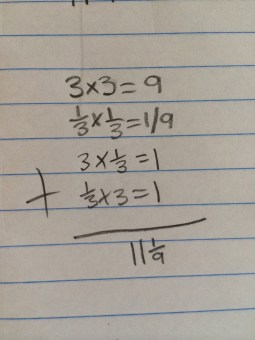 3×3=9
1/3×1/3=1/9
3×1/3=1
+ 1/3×3=1
11 1/9